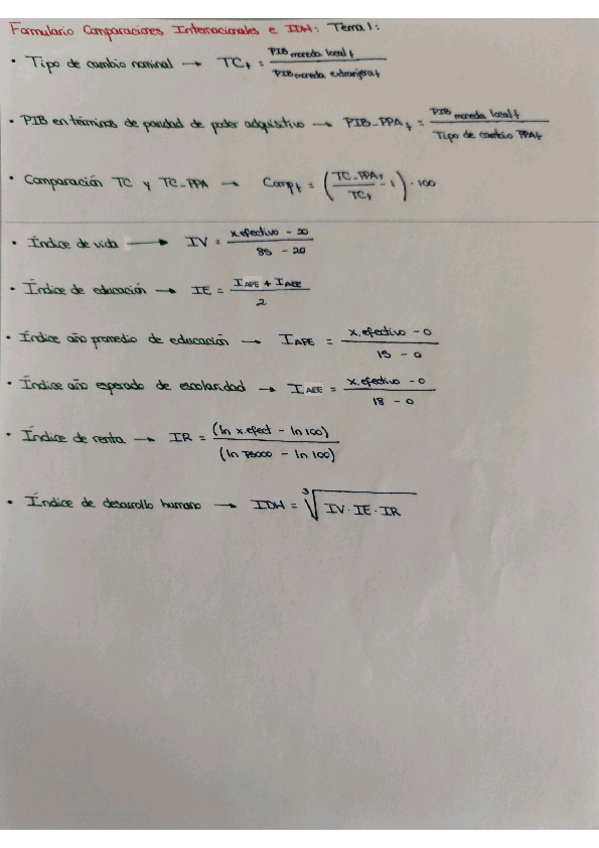 Formulario Comparaciones Internacionales e IDH: Tema 1:
• Tipo de cambio nominal → TC_t = PIB moneda local t / PIB moneda extranjera t
• PIB en términos de paridad de poder adquisitivo → PIB_PPA_t = PIB moneda local t / Tipo de cambio PPA t
• Comparación TC y TC_PPA → Comp_t = (TC_PPA_t / TC_t - 1) · 100
• Índice de vida → IV = x.efectivo - 20 / 85 - 20
• Índice de educación → IE = I_APE + I_AEE / 2
• Índice año promedio de educación → I_APE = x.efectivo - 0 / 15 - 0
• Índice año esperado de escolaridad → I_AEE = x.efectivo - 0 / 18 - 0
• Índice de renta → IR = (ln x.efect - ln 100) / (ln 75000 - ln 100)
• Índice de desarrollo humano → IDH = ∛(IV · IE · IR)